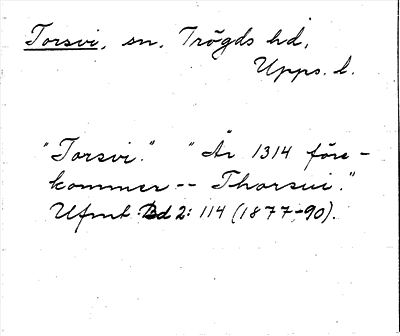 Torsvi, sn, Trögds hd,
Upps. l.
"Torsvi." "År 1314 före-
kommer -- Thorsui."
Ufmt: Bd 2: 114 (1877-90).